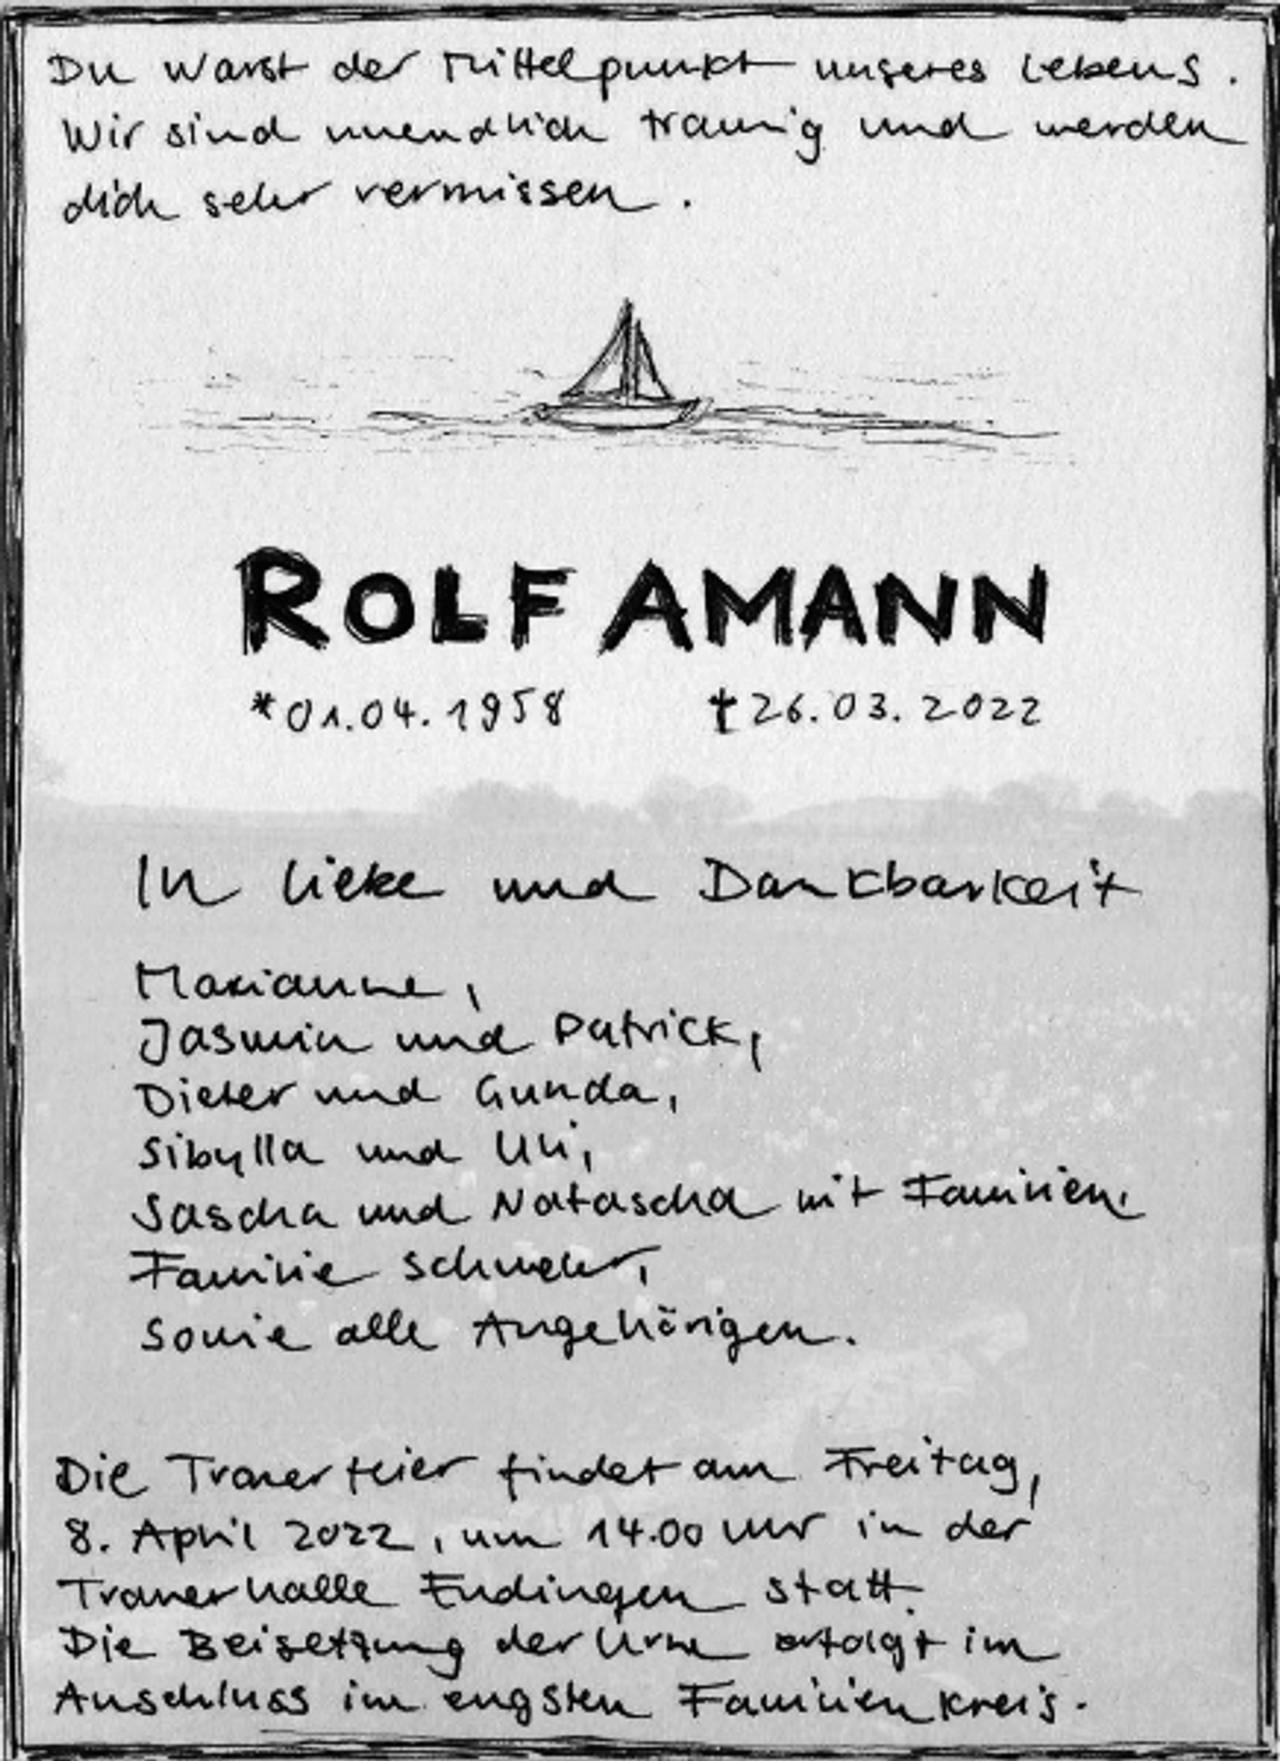 Du warst der Mittelpunkt unseres Lebens.
Wir sind unendlich traurig und werden
dich sehr vermissen.
ROLF AMANN
*01.04.1958 †26.03.2022
In Liebe und Dankbarkeit
Marianne,
Jasmin und Patrick,
Dieter und Gunda,
Sibylla und Uli,
Sascha und Natascha mit Familien,
Familie Schmehr,
Sowie alle Angehörigen.
Die Trauerfeier findet am Freitag,
8. April 2022, um 14.00 Uhr in der
Trauerhalle Endingen statt.
Die Beisetzung der Urne erfolgt im
Anschluss im engsten Familienkreis.